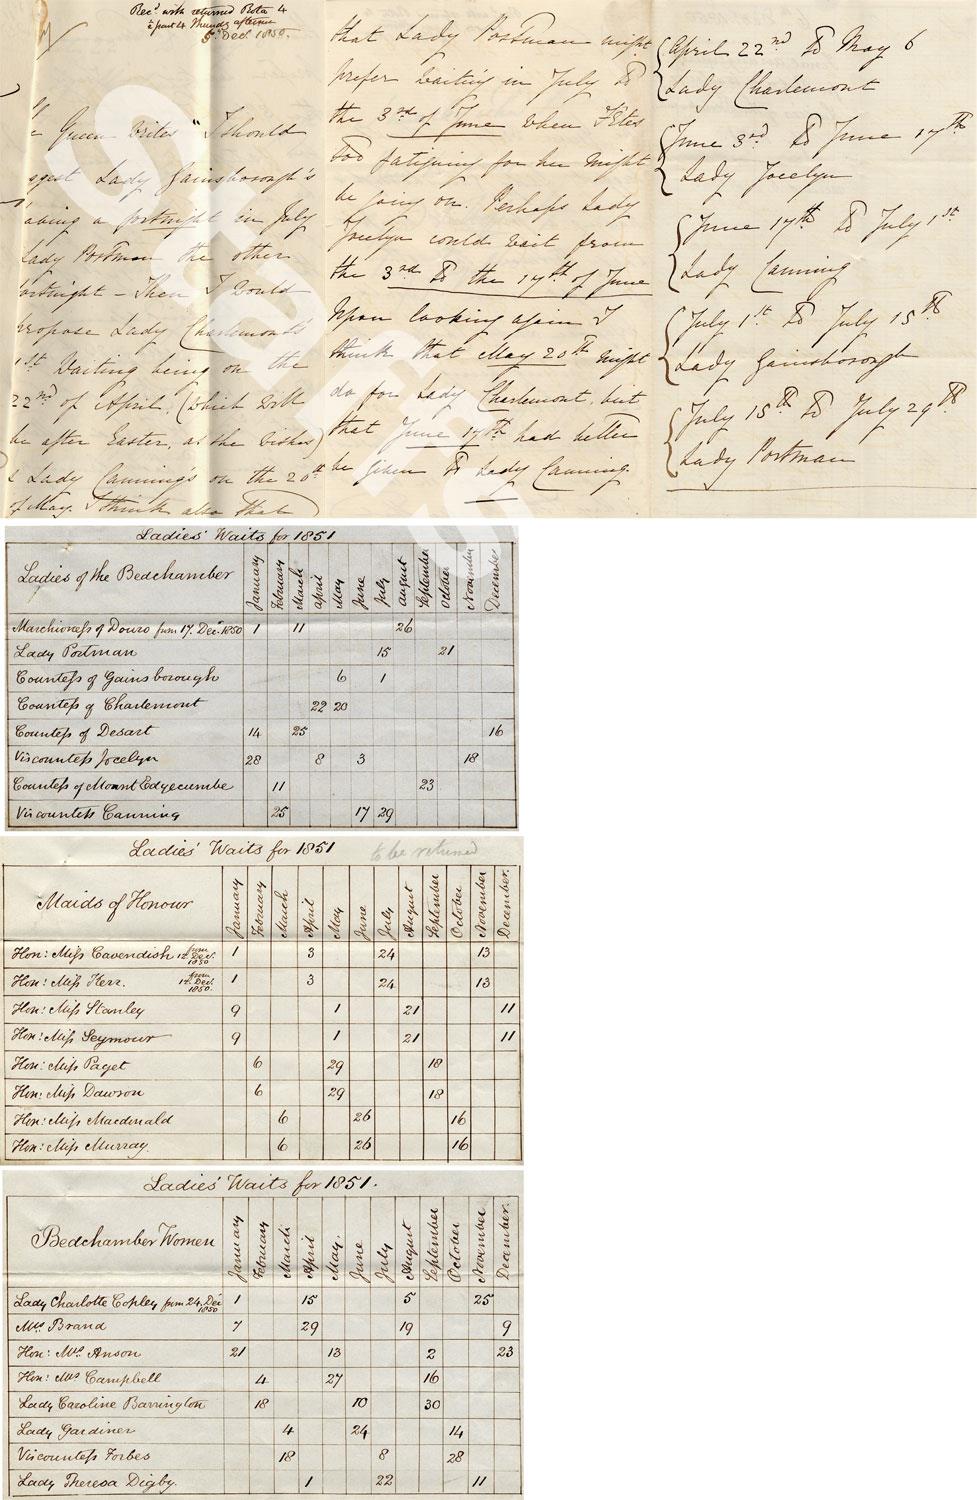 Rec.d with returned Rota 4
5 Dec.r 1850.
Queen writes "I should
Lady Gainsborough's
a fortnight in July
Lady Portman the other
fortnight – Then I would
propose Lady Charlemont's
1st Waiting being on the
22nd of April, (which will
be after Easter, as she wishes)
& Lady Canning's on the 20th
of May. I think also that
that Lady Portman might
prefer waiting in July to
the 3rd of June when Fêtes
too fatiguing for her might
be going on. Perhaps Lady
Jocelyn could wait from
the 3rd to the 17th of June
Upon looking again I
think that May 20th might
do for Lady Charlemont, but
that June 17th had better
be given to Lady Canning.
April 22nd to May 6
Lady Charlemont
June 3rd to June 17th
Lady Jocelyn
June 17th to July 1st
Lady Canning
July 1st to July 15th
Lady Gainsborough
July 15th to July 29th
Lady Portman
Staffs
Ladies' Waits for 1851
Ladies of the Bedchamber January February March April May June July August September October November December
Marchioness of Douro from 17. Dec.r 1850 1 11 26
Lady Portman 15 21
Countess of Gainsborough 6 1
Countess of Charlemont 22 20
Countess of Desart 14 25 16
Viscountess Jocelyn 28 8 3 18
Countess of Mount Edgecumbe 11 23
Viscountess Canning 25 17 29
Ladies' Waits for 1851 to be returned
Maids of Honour January February March April May June July August September October November December.
Hon: Miss Cavendish from 12. Dec. 1850 1 3 24 13
Hon: Miss Kerr. from 12. Dec. 1850. 1 3 24 13
Hon: Miss Stanley 9 1 21 11
Hon: Miss Seymour 9 1 21 11
Hon: Miss Paget 6 29 18
Hon: Miss Dawson 6 29 18
Hon: Miss Macdonald 6 26 16
Hon: Miss Murray. 6 26 16
Ladies' Waits for 1851.
Bedchamber Women January February March April May. June July August September October November December.
Lady Charlotte Copley from 24. Dec 1850 1 15 5 25
Mrs Brand 7 29 19 9
Hon: Mrs Anson 21 13 2 23
Hon: Mrs Campbell 4 27 16
Lady Caroline Barrington 18 10 30
Lady Gardiner 4 24 14
Viscountess Forbes 18 8 28
Lady Theresa Digby. 1 22 11